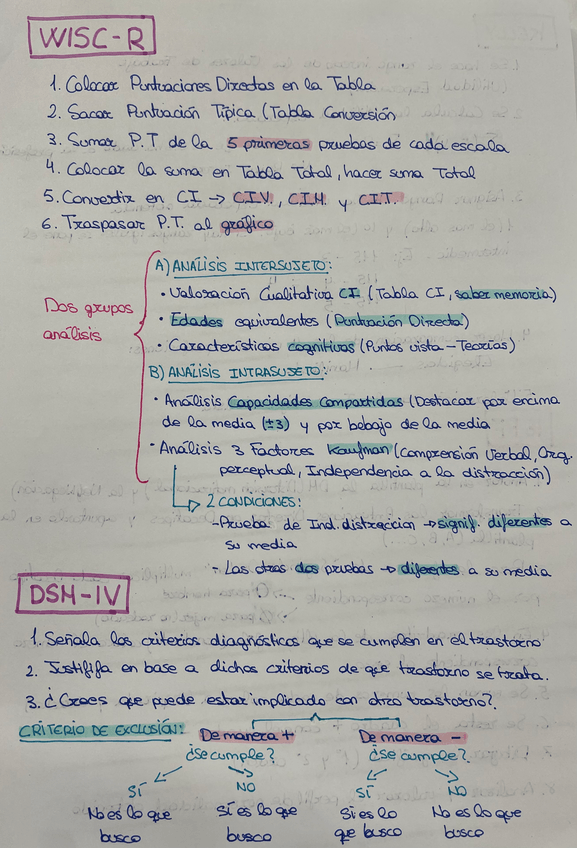 WISC-R
1. Colocar Puntuaciones Directas en la Tabla
2. Sacar Puntuación Típica (Tabla Conversión
3. Sumar P.T de la 5 primeras pruebas de cada escala
4. Colocar la suma en Tabla Total, hacer suma Total
5. Convertir en CI → C.I.V., C.I.M. y CIT.
6. Traspasar P.T. al gráfico
Dos grupos
análisis
A) ANÁLISIS INTERSUJETO:
• Valoración Cualitativa CI (Tabla CI, saber memoria)
• Edades equivalentes (Puntuación Directa)
• Características cognitivas (Puntos vista - Teorías)
B) ANÁLISIS INTRASUJETO:
• Análisis Capacidades Compartidas (Destacar por encima
de la media (±3) y por bebajo de la media
• Análisis 3 Factores Kaufman (Comprensión Verbal, Org.
perceptual, Independencia a la distracción)
→ 2 CONDICIONES:
- Prueba de Ind. distracción → signif. diferentes a
su media
- Las otras dos pruebas → diferentes a su media
DSM-IV
1. Señala los criterios diagnósticos que se cumplen en el trastorno
2. Justififa en base a dichos criterios de que trastorno se trata.
3. ¿Crees que puede estar implicado con otro trastorno?.
CRITERIO DE EXCLUSIÓN: De manera + De manera -
¿se cumple? ¿Se cumple?
SÍ NO SÍ NO
No es lo que Sí es lo que Sí es lo No es lo que
busco busco que busco busco